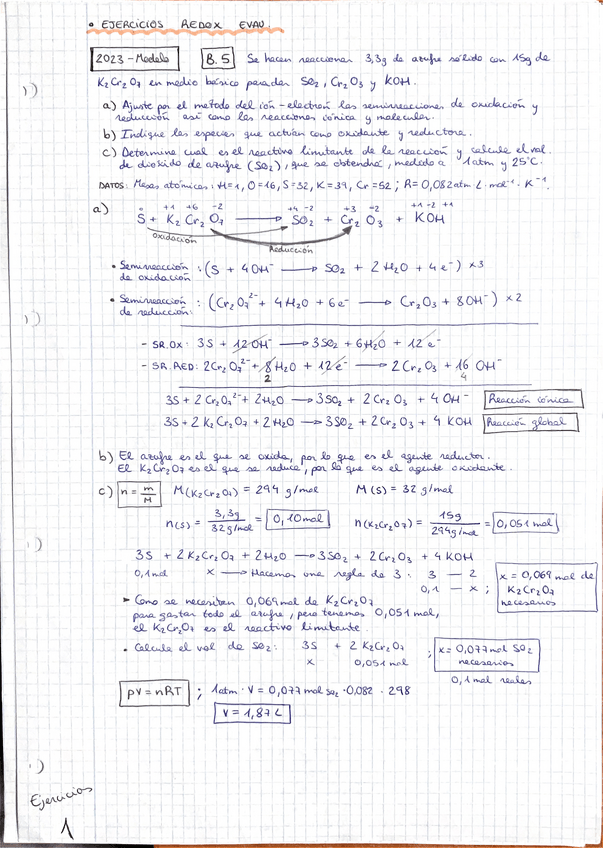 • EJERCICIOS REDOX EVAU.
2023 - Modelo B.5 Se hacen reaccionar 3,3g de azufre sólido con 15g de
K₂Cr₂O₇ en medio básico para dar SO₂, Cr₂O₃ y KOH.
a) Ajuste por el método del ión-electrón las semirreacciones de oxidación y
reducción así como las reacciones iónica y molecular.
b) Indique las especies que actúan como oxidante y reductora.
c) Determine cual es el reactivo limitante de la reacción y calcule el vol.
de dióxido de azufre (SO₂), que se obtendrá, medido a 1atm y 25°C.
DATOS: Masas atómicas: H=1, O=16, S=32, K=39, Cr=52; R=0,082 atm·L·mol⁻¹·K⁻¹.
0 +1 +6 -2 +4 -2 +3 -2 +1 -2 +1
a) S + K₂ Cr₂ O₇ → SO₂ + Cr₂ O₃ + KOH
oxidación
Reducción
• Semirreacción de oxidación : (S + 4OH⁻ → SO₂ + 2H₂O + 4e⁻) ×3
• Semirreacción de reducción: : (Cr₂O₇²⁻ + 4H₂O + 6e⁻ → Cr₂O₃ + 8OH⁻) ×2
- SR.OX: 3S + 12OH⁻ → 3SO₂ + 6H₂O + 12e⁻
- SR.RED: 2Cr₂O₇²⁻ + 8H₂O + 12e⁻ → 2Cr₂O₃ + 16 OH⁻
2 4
3S + 2Cr₂O₇²⁻ + 2H₂O → 3SO₂ + 2Cr₂O₃ + 4OH⁻ Reacción iónica
3S + 2K₂Cr₂O₇ + 2H₂O → 3SO₂ + 2Cr₂O₃ + 4 KOH Reacción global
b) El azufre es el que se oxida, por lo que es el agente reductor.
El K₂Cr₂O₇ es el que se reduce, por lo que es el agente oxidante.
c) n = m/M M(K₂Cr₂O₇) = 294 g/mol M(S) = 32 g/mol
n(S) = 3,3g / 32g/mol = 0,10mol n(K₂Cr₂O₇) = 15g / 294g/mol = 0,051mol
3S + 2K₂Cr₂O₇ + 2H₂O → 3SO₂ + 2Cr₂O₃ + 4KOH
0,1mol x → Hacemos una regla de 3: 3 — 2
0,1 — x ; x = 0,069mol de K₂Cr₂O₇ necesarios
➤ Como se necesitan 0,069mol de K₂Cr₂O₇
para gastar todo el azufre, pero tenemos 0,051mol,
el K₂Cr₂O₇ es el reactivo limitante.
• Calcule el vol de SO₂: 3S + 2 K₂Cr₂O₇ ; x = 0,077mol SO₂ necesarios
x 0,051mol
0,1mol reales
PV = nRT ; 1atm · V = 0,077mol SO₂ · 0,082 · 298
V = 1,87L
Ejercicios
1